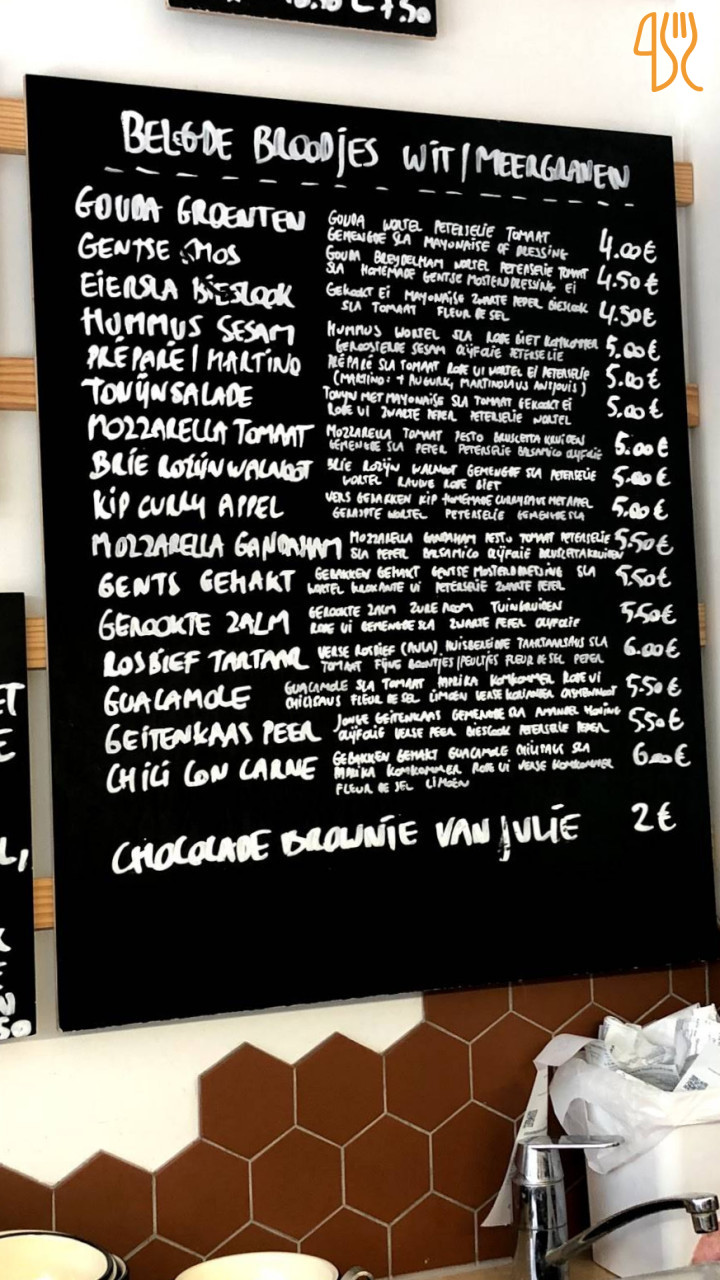 7.50
BELEGDE BROODJES WIT / MEERGRANEN
GOUDA GROENTEN GOUDA WORTEL PETERSELIE TOMAAT 4.00€
GEMENGDE SLA MAYONAISE OF DRESSING
GENTSE MOS GOUDA BREYDELHAM WORTEL PETERSELIE TOMAAT 4.50€
SLA HOMEMADE GENTSE MOSTERDDRESSING EI
EIERSLA BIESLOOK GEKOOKT EI MAYONAISE ZWARTE PEPER BIESLOOK 4.50€
SLA TOMAAT FLEUR DE SEL
HUMMUS SESAM HUMMUS WORTEL SLA RODE BIET KOMKOMMER 5,00€
GEROOSTERDE SESAM OLIJFOLIE PETERSELIE
PRÉPARÉ / MARTINO PRÉPARÉ SLA TOMAAT RODE UI WORTEL EI PETERSELIE 5.00€
(MARTINO: + AUGURK, MARTINOSAUS ANSJOVIS)
TONIJNSALADE TONIJN MET MAYONAISE SLA TOMAAT GEKOOKT EI 5,00€
RODE UI ZWARTE PEPER PETERSELIE WORTEL
MOZZARELLA TOMAAT MOZZARELLA TOMAAT PESTO BRUSCETTA KRUIDEN 5.00€
GEMENGDE SLA PEPER PETERSELIE BALSAMICO OLIJFOLIE
BRIE ROZIJN WALNOOT BRIE ROZIJN WALNOOT GEMENGDE SLA PETERSELIE 5.00€
WORTEL RAUWE RODE BIET
KIP CURRY APPEL VERS GEBAKKEN KIP HOMEMADE CURRYSAUS MET APPEL 5.00€
GERASPTE WORTEL PETERSELIE GEMENGDE SLA
MOZZARELLA GANDAHAM MOZZARELLA GANDAHAM PESTO TOMAAT PETERSELIE 5.50€
SLA PEPER BALSAMICO OLIJFOLIE BRUSCETTAKRUIDEN
GENTS GEHAKT GEBAKKEN GEHAKT GENTSE MOSTERDDRESSING SLA 5.50€
WORTEL KROKANTE UI PETERSELIE ZWARTE PEPER
GEROOKTE ZALM GEROOKTE ZALM ZURE ROOM TUINKRUIDEN 5.50€
RODE UI GEMENGDE SLA ZWARTE PEPER OLIJFOLIE
ROSBIEF TARTAAR VERSE ROSBIEF HUISBEREIDE TAARTAARSAUS SLA 6.00€
TOMAAT FIJNE BOONTJES/PEULTJES FLEUR DE SEL PEPER
GUACAMOLE GUACAMOLE SLA TOMAAT PAPRIKA KOMKOMMER RODE UI 5.50€
CHILISAUS FLEUR DE SEL LIMOEN VERSE KORIANDER CASHEWNOOT
GEITENKAAS PEER JONGE GEITENKAAS GEMENGDE SLA AMANDEL HONING 5.50€
OLIJFOLIE VERSE PEER BIESLOOK PETERSELIE PEPER
CHILI CON CARNE GEBAKKEN GEHAKT GUACAMOLE CHILISAUS SLA 6.00€
PAPRIKA KOMKOMMER RODE UI VERSE KOMKOMMER
FLEUR DE SEL LIMOEN
CHOCOLADE BROWNIE VAN JULIE 2€